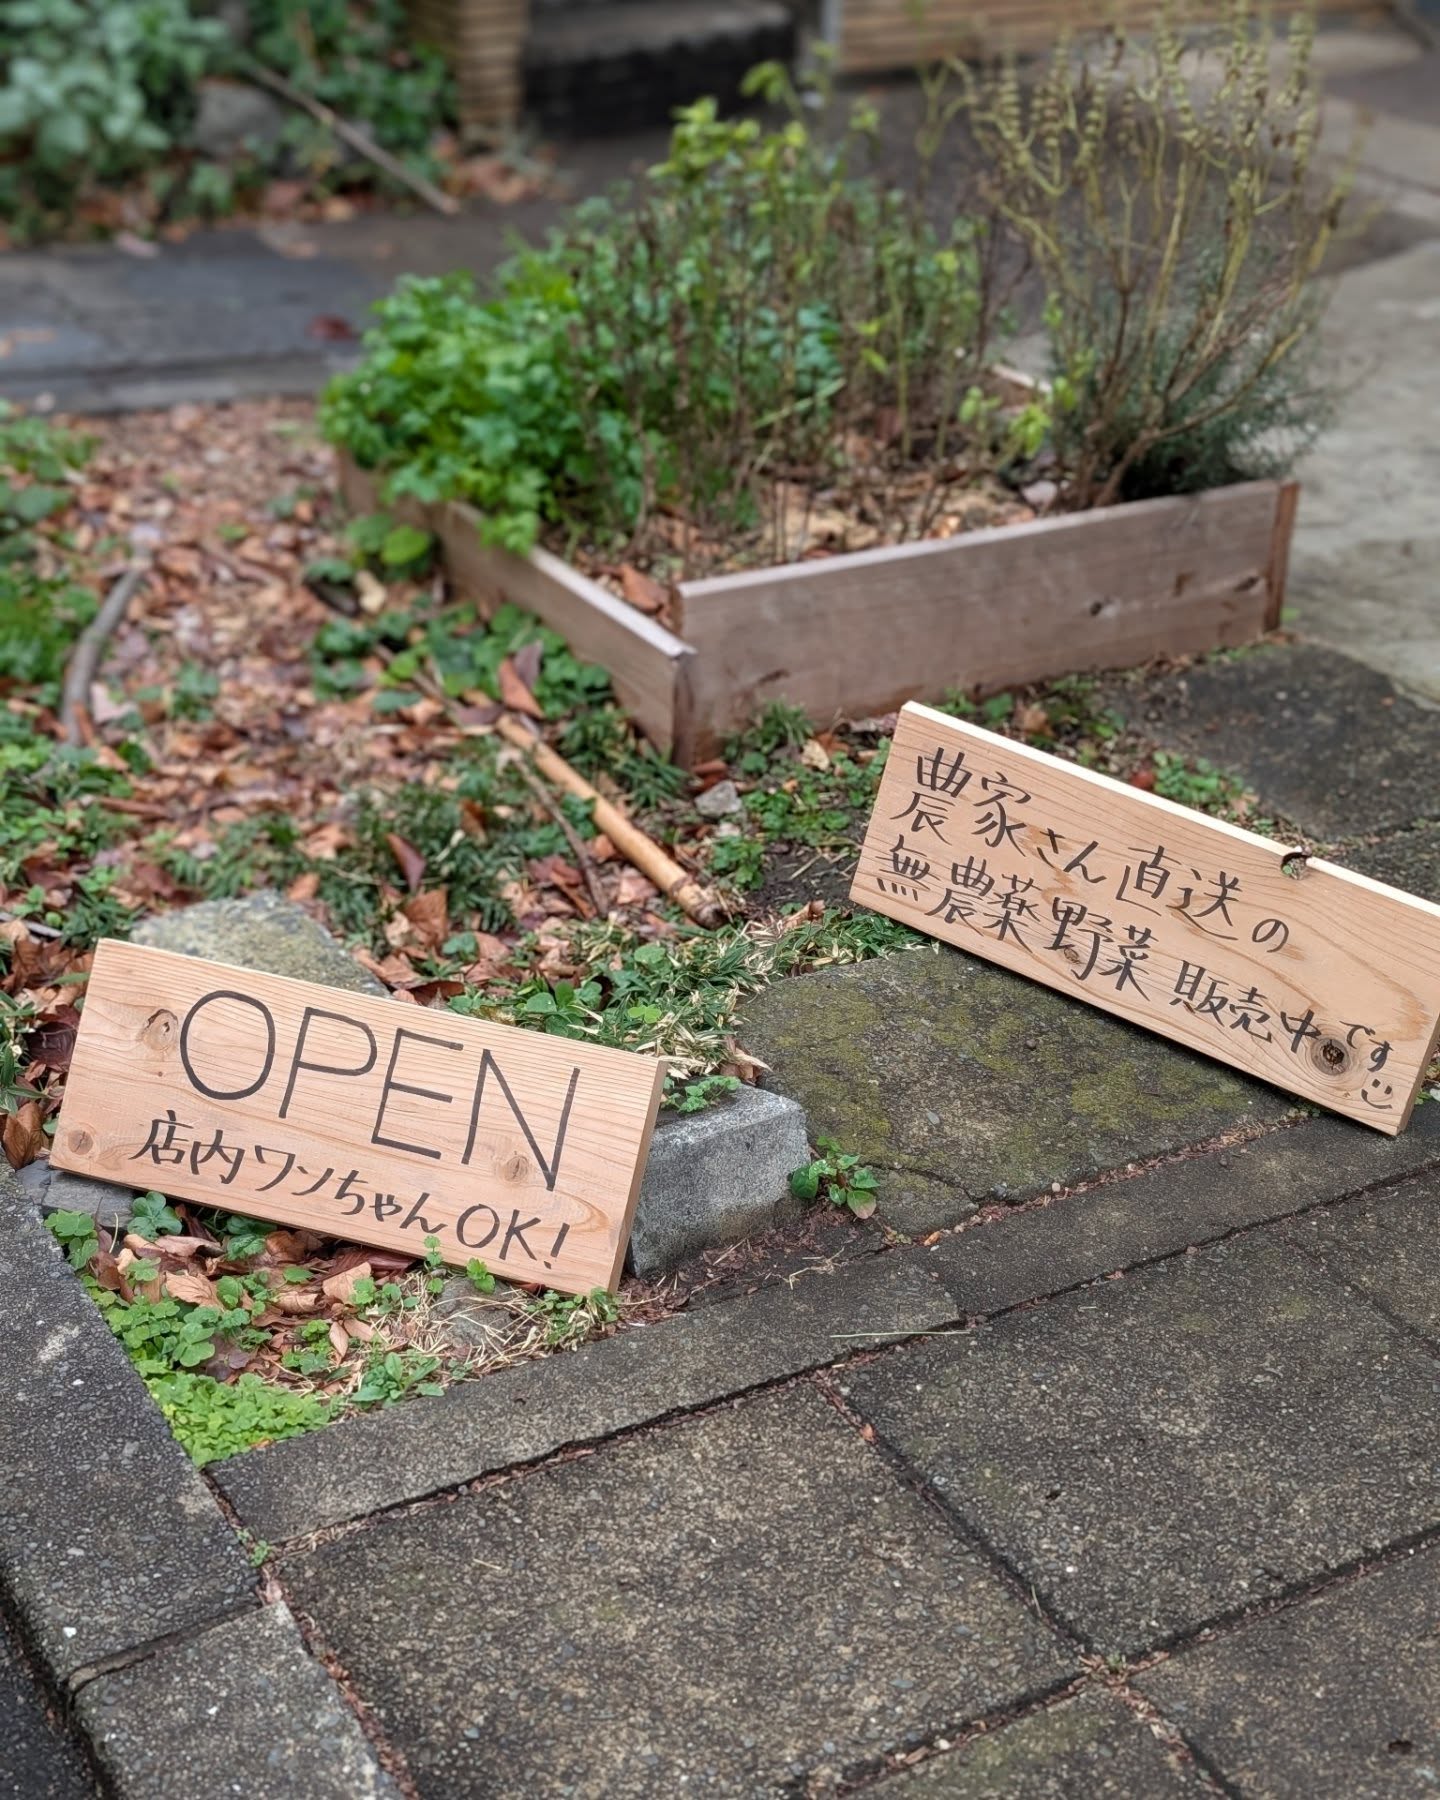 OPEN
店内ワンちゃんOK!
農家さん直送の
無農薬野菜販売中です